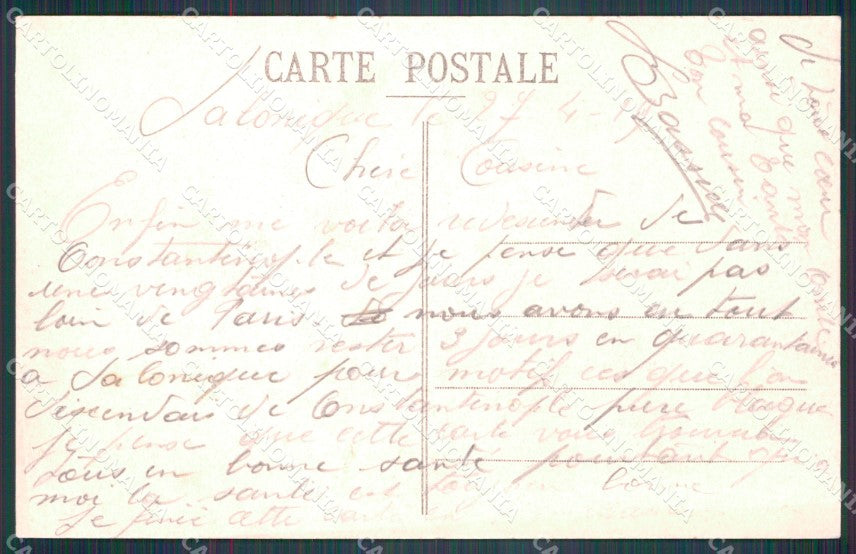 CARTE POSTALE
Salonique le 27 4-19
Chère Cousine
Enfin me voila redescendu de
Constantinople et je pense que dans
une vingtaines de jours je serai pas
loin de Paris nous avons en tout
nous sommes rester 3 jours en quarantaine
a Salonique pour motif que l'on
descendais de Constantinople
je pense que cette carte vous
tous en bonne santé pourtant
moi la santé est bonne
Je finie cette carte en
de tout cœur
ainsi que mon
et ma tante
Ton cousin
CARTOLINOMANIA